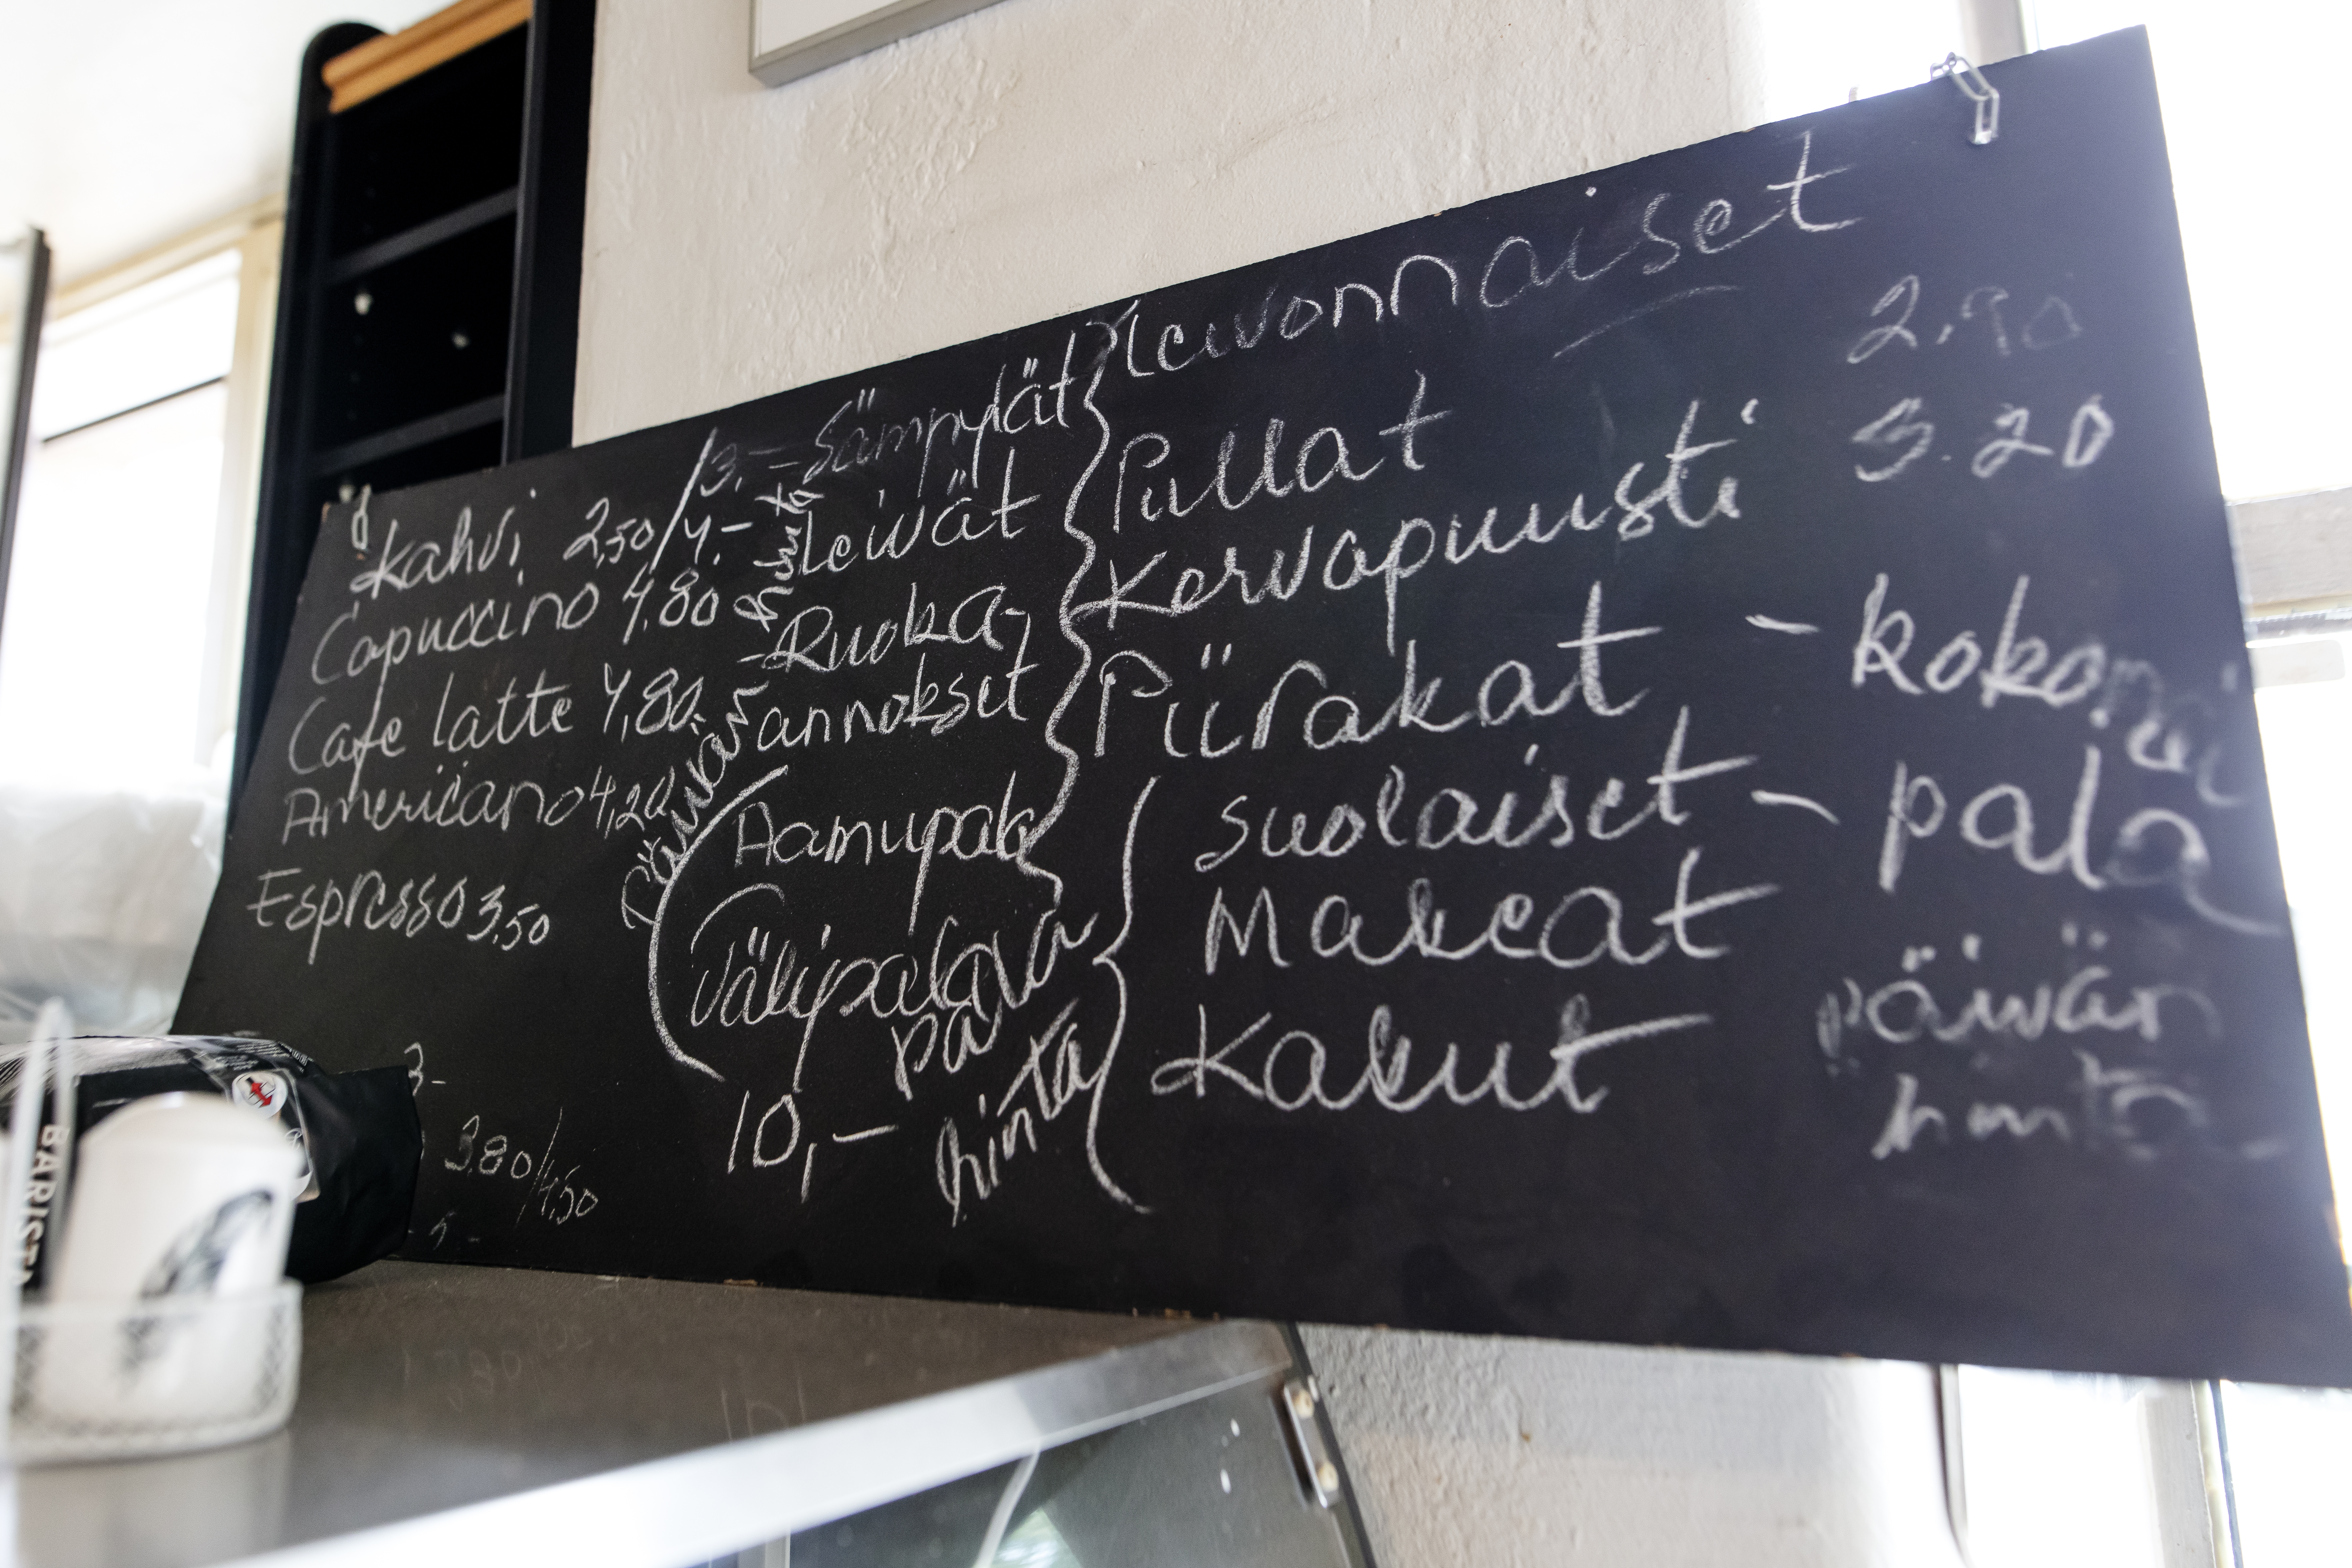 Kahvi 2,50/3,-
/4,-
Capuccino 4.80
Cafe latte 4,80
Americano 4,20
Espresso 3,50
3-
3.80/4,50
- Sämpylät
Leivät
hinta
- Ruoka-
annokset
Päivän
Aamupala
Välipala
10,-
päivän
hinta
Leivonnaiset
Pullat 2,90
Korvapuusti 3.20
Piirakat - kokonai
Suolaiset - pala
Makeat
Kakut päivän
hinta
BARISTA